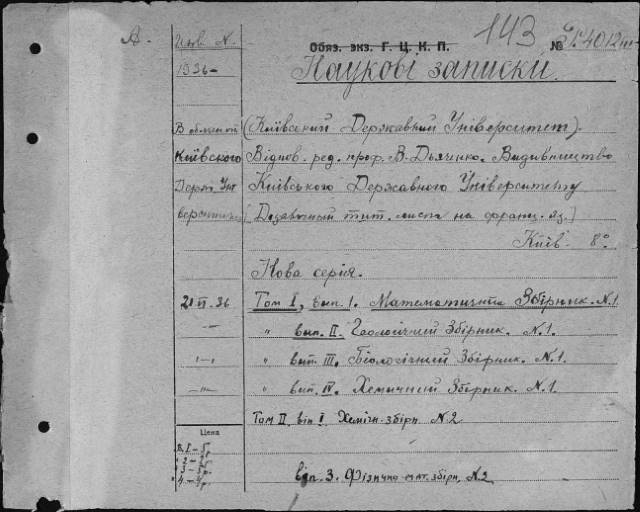 А.
Обяз. экз. Г. Ц. К. П.
143
№
1936-
Наукові записки.
(Київський Державний Університет).
Київського Віднов. ред. проф. В. Дьяченко. Видавництво
Київського Державного Університету
(Додатковий тит. лист на франц. яз.)
Київ. 8°
Нова серія.
21 VI. 36 Том I, вип. 1. Математичний Збірник. N.1.
—"— " вип. II. Геологічний Збірник. N.1.
—"— " вип. III. Біологічний Збірник. N.1.
—"— " вип. IV. Хемичний Збірник. N.1.
Том II віп I Хемічн. збірн. N.2
Цена
віп. 3. Фізично-мат. збірн. N.2